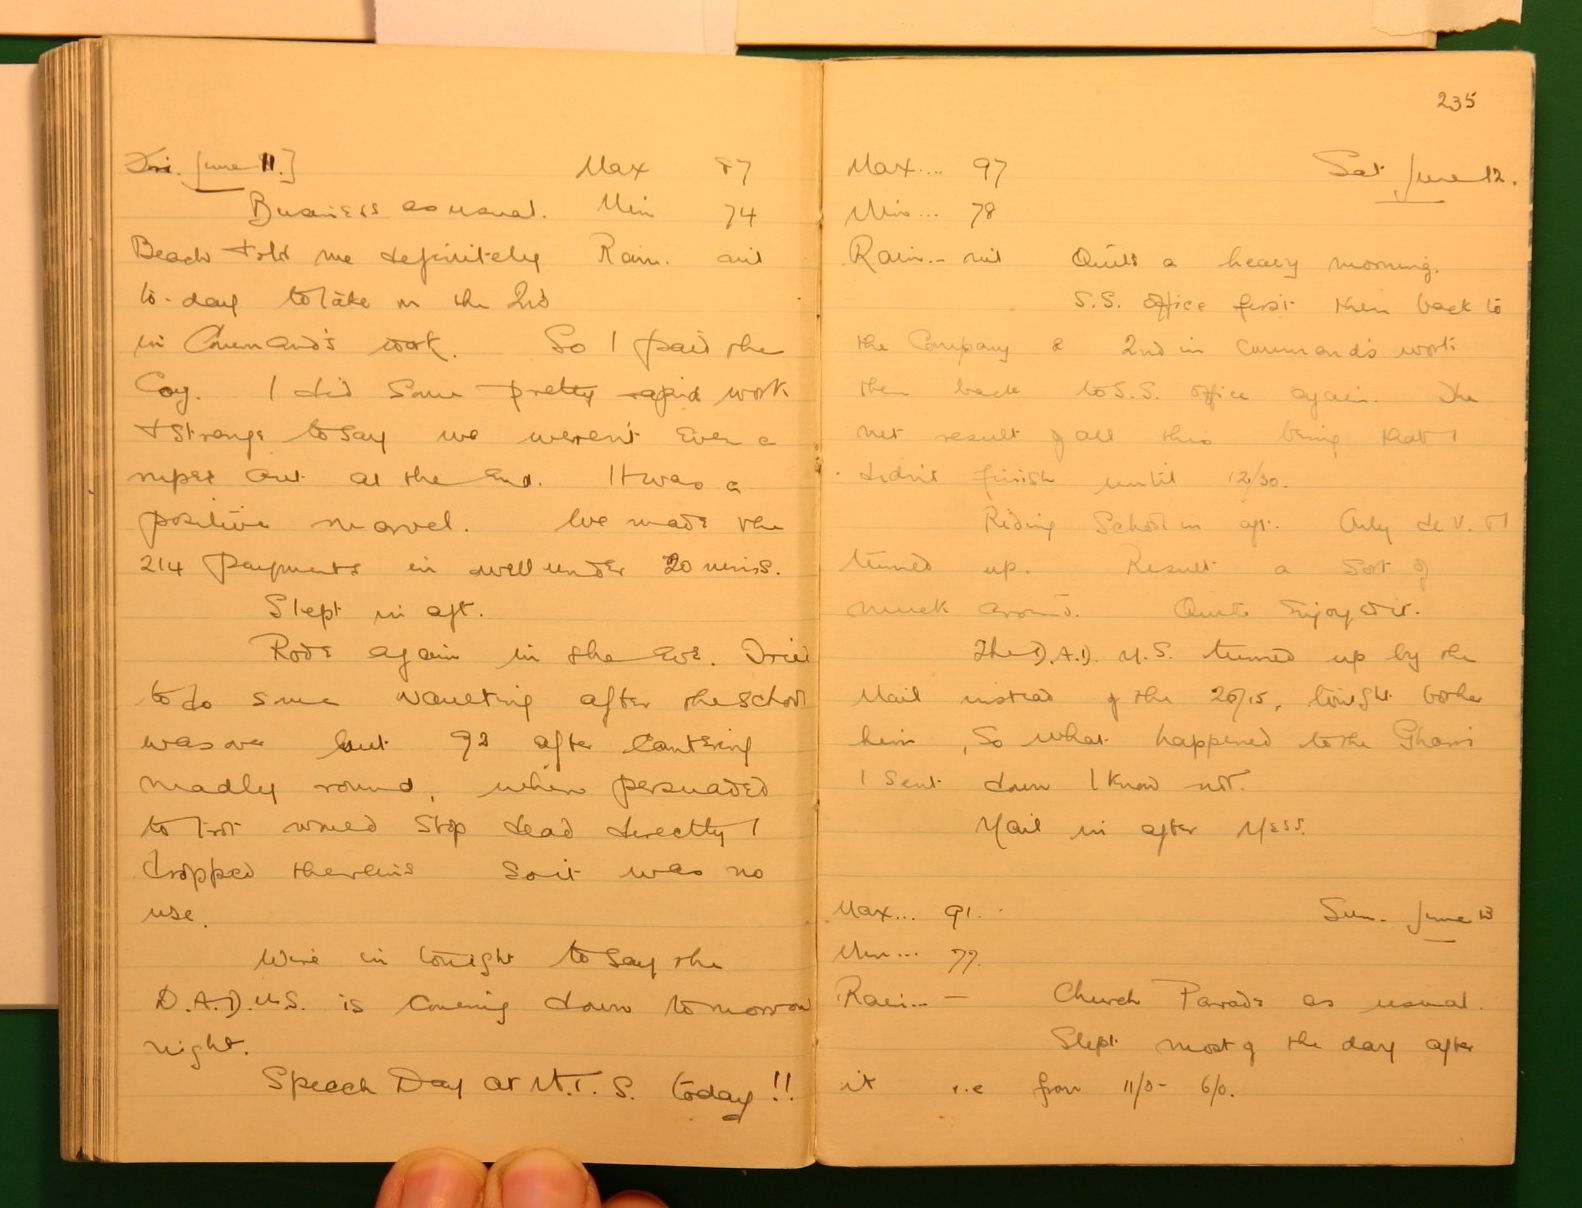 Fri. June 11.] Max 87
Business as usual. Min 74
Beach told me definitely Rain. nil
to-day to take on the 2nd
in Command's work. So I paid the
Coy. I did some pretty rapid work
& strange to say we weren't even a
rupee out at the end. It was a
positive marvel. We made the
214 payments in well under 20 mins.
Slept in aft.
Rode again in the eve. Tried
to do some vaulting after the school
was over but 92 after cantering
madly round, when persuaded
to trot would stop dead directly I
dropped the reins so it was no
use.
Wire in tonight to say the
D.A.D.M.S. is coming down tomorrow
night.
Speech Day at M.T.S. today!!
235
Max.... 97 Sat. June 12.
Min... 78
Rain... nil Quite a heavy morning.
S.S. office first then back to
the Company & 2nd in command's work
then back to S.S. office again. The
net result of all this being that I
didn't finish until 12/30.
Riding School in aft. Only de V. & I
turned up. Result a sort of
muck around. Quite enjoyed it.
The D.A.D.M.S. turned up by the
Mail instead of the 20/15, tonight bother
him, So what happened to the Gharri
I sent down I know not.
Mail in after Mess.
Max... 91. Sun. June 13
Min... 77.
Rain... — Church Parade as usual.
Slept most of the day after
it i.e from 11/0 - 6/0.